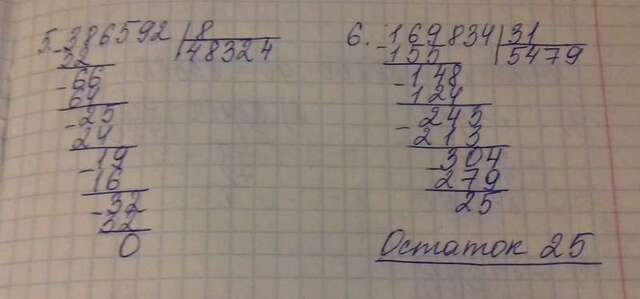 5. 386592 | 8
- 32 48324
- 66
64
- 25
24
- 19
16
- 32
32
0
6. - 169834 | 31
155 5479
- 148
124
- 243
213
- 304
279
25
Остаток 25